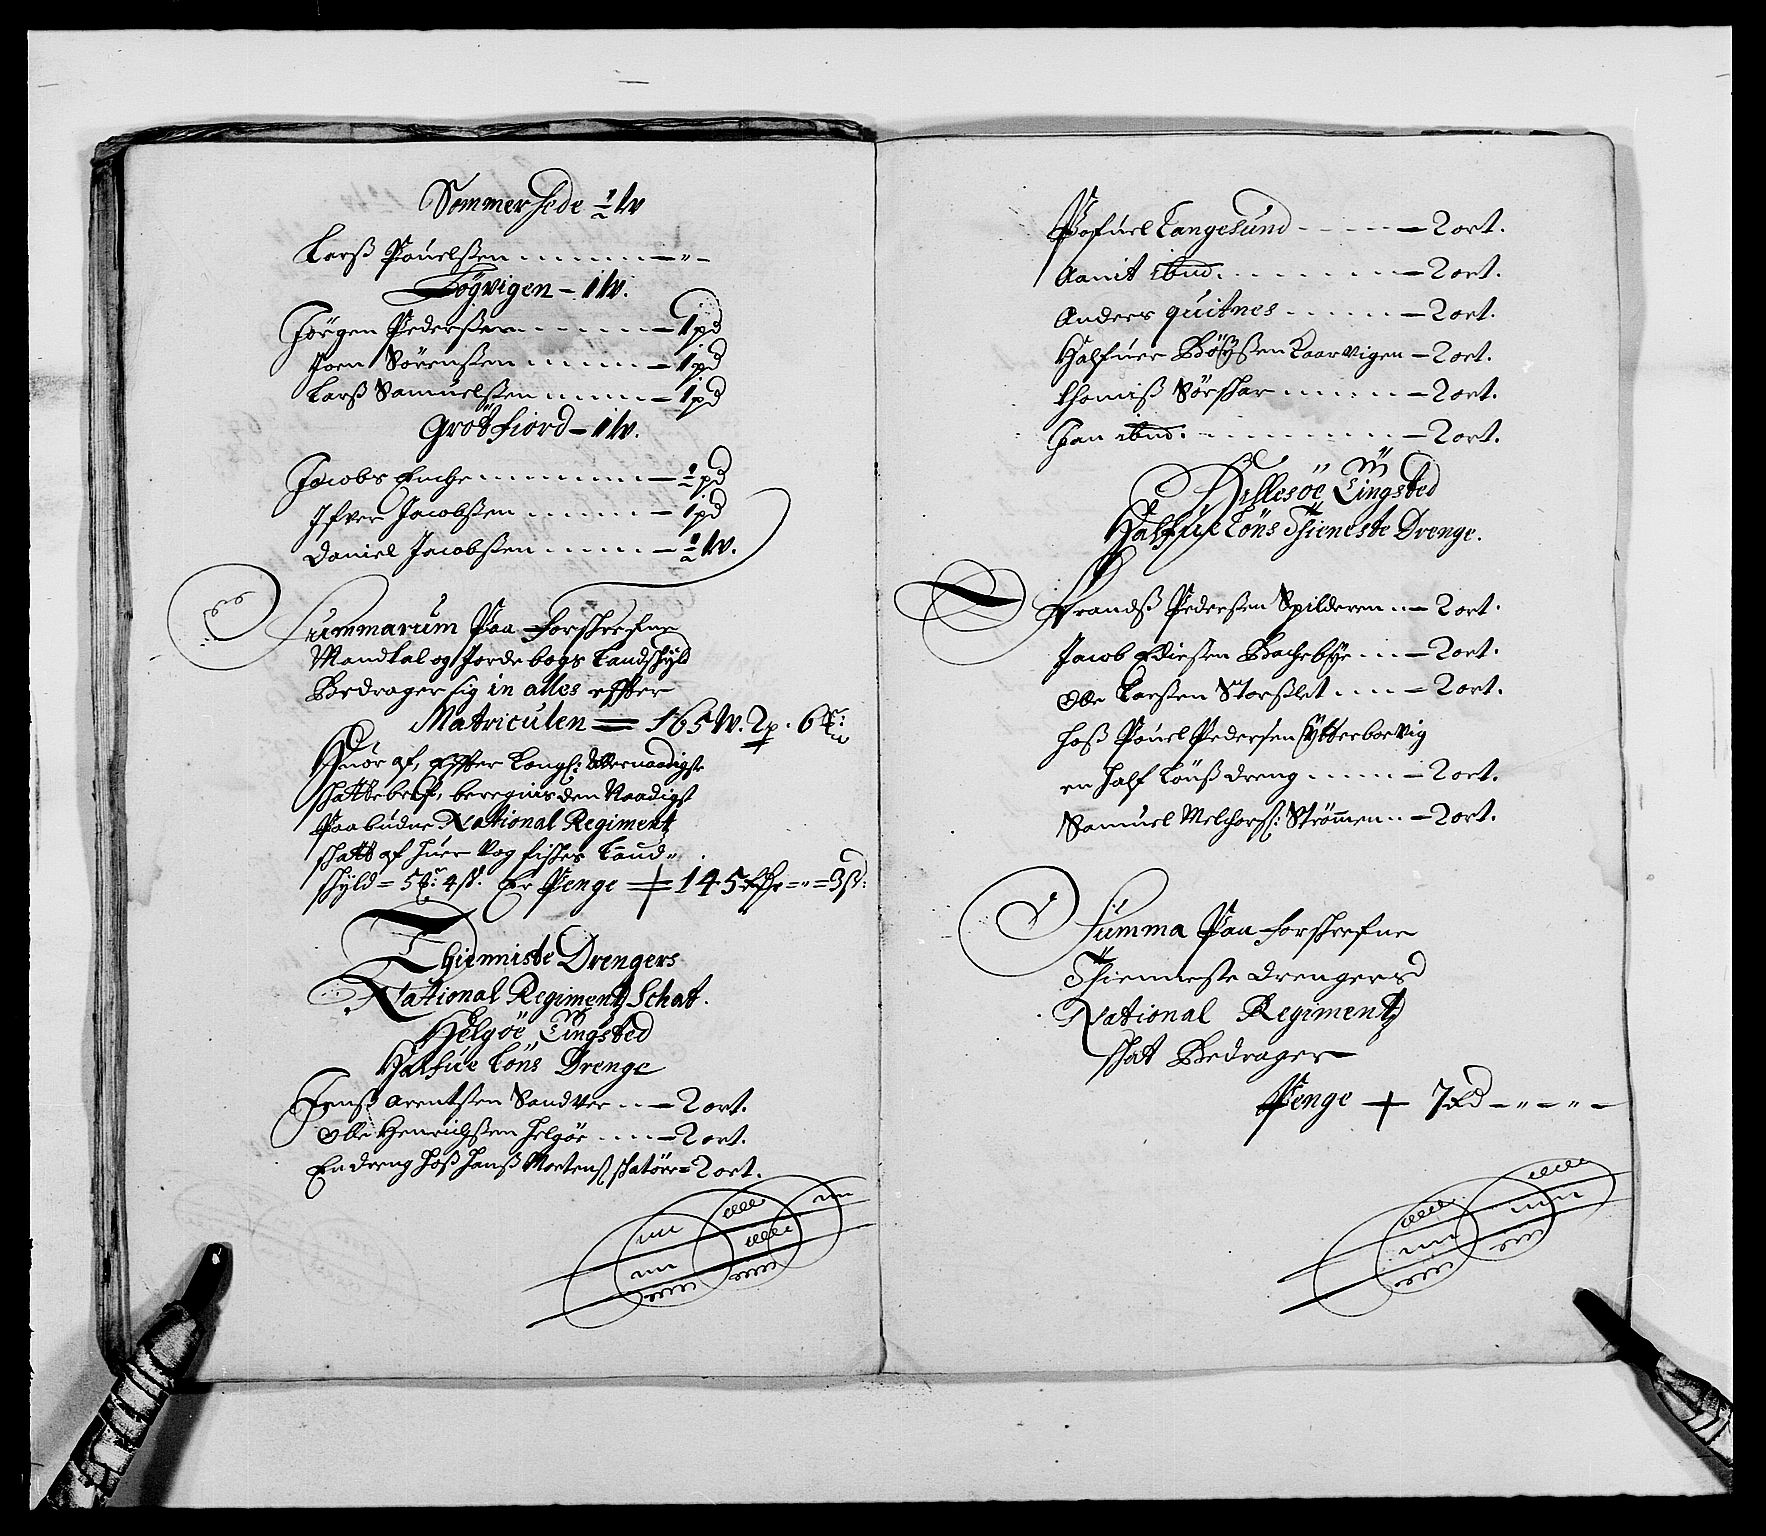 Sommersede ½ W
Larß Pouelßen - - - "-
Løgvigen - 1 W.
Jørgen Pederßen - - - 1 pd
Joen Sørenßen - - - 1 pd
Larß Samuelßen - - - 1 pd
Grötfiord - 1 W.
Jacobs Enche - - - ½ pd
Ifver Jacobßen - - - 1 pd
Daniel Jacobßen - - - ½ W.
Summarum Paa Forskrefne
Mandtal og Jordebogs Landskyld
Bedrager sig in alles effter
Matriculen = 165 W. 2 p. 6
Huor af, effter Kongl: Allernaadigste
skattebref, beregnis den Naadigst
Paabudne National Regiment
skatt af huer Vog fiskes Land-
skyld = 5 4 ß. Er Penge = 145 - " - 3 ß:
Thienniste Drengers
National Regimentz Schat.
Helgöe Tingsted
Halfue Löns Drenge
Jenß Arentßen Sandver - - 2 ort.
Olle Henrichßen Helgøe - - 2 ort.
En dreng hoß Hanß Mortenß skatöre = 2 ort.
Pofuel Langesund - - - 2 ort.
Aamit ibid. - - - 2 ort.
Anders quitnes - - - 2 ort.
Halfuer Kaarvigen - 2 ort.
Thomiß Sörskar - - - 2 ort.
Jan ibid. - - - 2 ort.
Hillesöe Tingsted
Halfue Löns Thieneste Drenge.
Frandß Pederßen Spilderen - - 2 ort.
Jacob Bachebye - - - 2 ort.
Olle Larßen Storßlet - - - 2 ort.
hoß Pouel Pedersen Ytterborvig
en half Lönß dreng - - - 2 ort.
Samuel Melchorß: Strömmen - - 2 ort.
Summa Paa Forskrefne
Thienneste drengers
National Regimentz
skat Bedrager
Penge + 7 Rd - " - " -